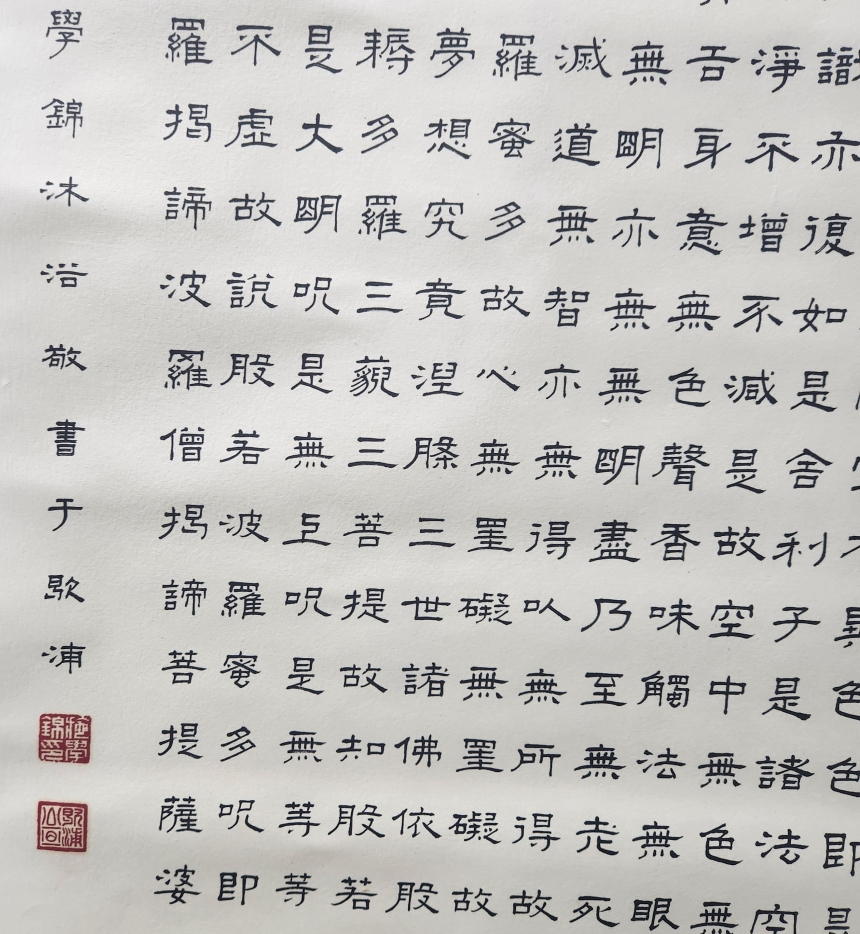 異色色即是
識亦復如是舍利子是諸法空
淨不增不減是故空中無色無
舌身意無色聲香味觸法無眼
無明亦無無明盡乃至無老死
滅道無智亦無得以無所得故
羅蜜多故心無罣礙無罣礙故
夢想究竟涅槃三世諸佛依般
耨多羅三藐三菩提故知般若
是大明呪是無上呪是無等等
不虛故說般若波羅蜜多呪即
羅揭諦波羅僧揭諦菩提薩婆
學錦沐浴敬書于歇浦
施學錦印